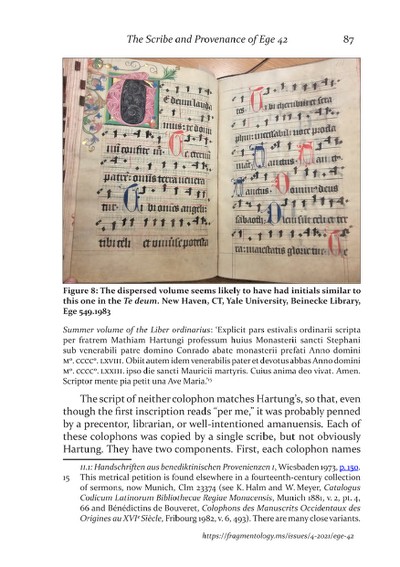 The Scribe and Provenance of Ege 42 87
Figure 8: The dispersed volume seems likely to have had initials similar to
this one in the Te deum. New Haven, CT, Yale University, Beinecke Library,
Ege 549.1983
Summer volume of the Liber ordinarius: 'Explicit pars estivalis ordinarii scripta
per fratrem Mathiam Hartungi professum huius Monasterii sancti Stephani
sub venerabili patre domino Conrado abate monasterii prefati Anno domini
Mº. CCCCº. LXVIII. Obiit autem idem venerabilis pater et devotus abbas Anno domini
Mº. CCCCº. LXXIII. ipso die sancti Mauricii martyris. Cuius anima deo vivat. Amen.
Scriptor mente pia petit una Ave Maria.'¹⁵
The script of neither colophon matches Hartung's, so that, even
though the first inscription reads "per me," it was probably penned
by a precentor, librarian, or well-intentioned amanuensis. Each of
these colophons was copied by a single scribe, but not obviously
Hartung. They have two components. First, each colophon names
11.1: Handschriften aus benediktinischen Provenienzen 1, Wiesbaden 1973, p. 150.
15 This metrical petition is found elsewhere in a fourteenth-century collection
of sermons, now Munich, Clm 23374 (see K. Halm and W. Meyer, Catalogus
Codicum Latinorum Bibliothecae Regiae Monacensis, Munich 1881, v. 2, pt. 4,
66 and Bénédictins de Bouveret, Colophons des Manuscrits Occidentaux des
Origines au XVIe Siècle, Fribourg 1982, v. 6, 493). There are many close variants.
https://fragmentology.ms/issues/4-2021/ege-42